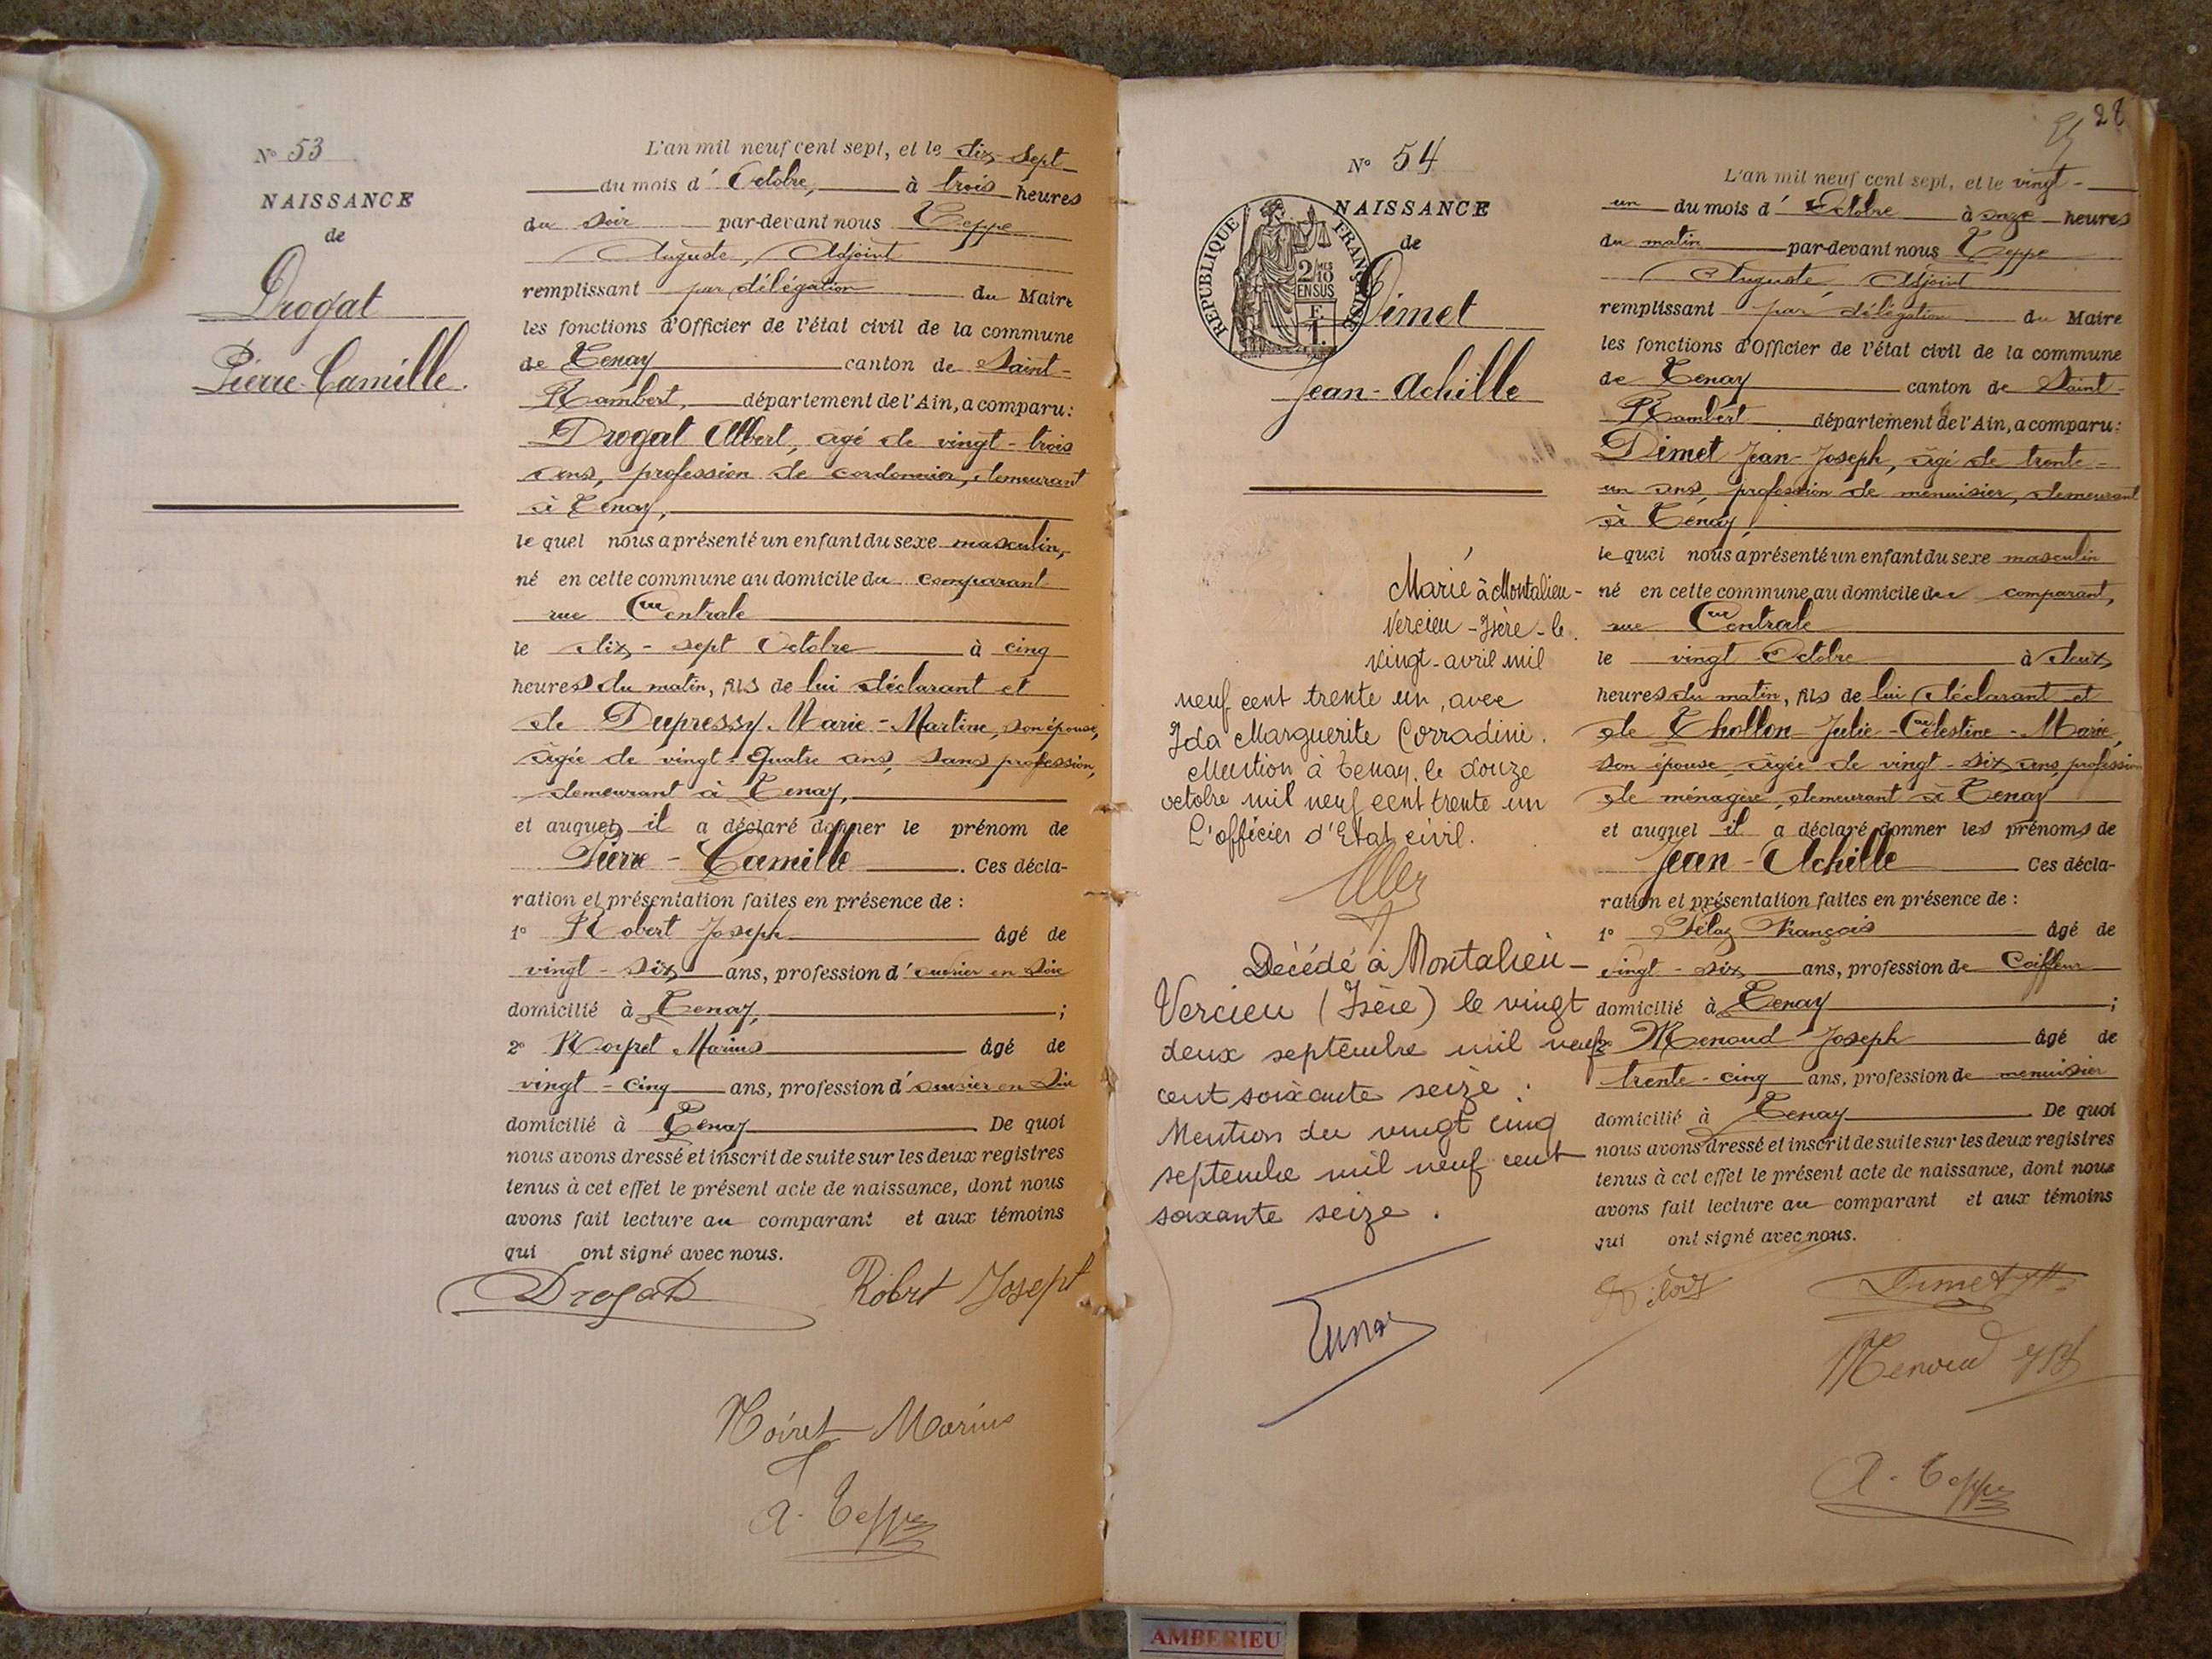 N° 53
NAISSANCE
de
Drogat
Pierre-Camille.
L'an mil neuf cent sept, et le dix-sept
du mois d'Octobre, à trois heures
du soir par-devant nous Teppe
Auguste, Adjoint
remplissant par délégation du Maire
les fonctions d'Officier de l'état civil de la commune
de Tenay canton de Saint-
Rambert, département de l'Ain, a comparu:
Drogat Albert, âgé de vingt-trois
ans, profession de cordonnier, demeurant
à Tenay,
lequel nous a présenté un enfant du sexe masculin,
né en cette commune au domicile du comparant
rue Centrale
le dix-sept Octobre à cinq
heures du matin, fils de lui déclarant et
de Dupressy Marie-Martine, son épouse,
âgée de vingt-quatre ans, sans profession,
demeurant à Tenay,
et auquel il a déclaré donner le prénom de
Pierre-Camille. Ces décla-
ration et présentation faites en présence de :
1° Robert Joseph âgé de
vingt-six ans, profession d'ouvrier en soie
domicilié à Tenay, ;
2° Marius âgé de
vingt-cinq ans, profession d'ouvrier en soie
domicilié à Tenay De quoi
nous avons dressé et inscrit de suite sur les deux registres
tenus à cet effet le présent acte de naissance, dont nous
avons fait lecture au comparant et aux témoins
qui ont signé avec nous.
Drogat Robert Joseph
Marius
A. Teppe
28
N° 54
NAISSANCE
de
REPUBLIQUE FRANÇAISE
2/10 MES
EN SUS
Dimet
Jean-Achille
Marié à Montalieu-
Vercieu-Isère-le
vingt-avril mil
neuf cent trente un, avec
Ida Marguerite Corradini.
Mention à Tenay, le douze
octobre mil neuf cent trente un
L'officier d'Etat civil.
Décédé à Montalieu-
Vercieu (Isère) le vingt
deux septembre mil neuf
cent soixante seize.
Mention du vingt cinq
septembre mil neuf cent
soixante seize.
L'an mil neuf cent sept, et le vingt-
un du mois d'Octobre à onze heures
du matin par-devant nous Teppe
Auguste, Adjoint
remplissant par délégation du Maire
les fonctions d'Officier de l'état civil de la commune
de Tenay canton de Saint-
Rambert département de l'Ain, a comparu:
Dimet Jean-Joseph, âgé de trente-
un ans, profession de menuisier, demeurant
à Tenay,
lequel nous a présenté un enfant du sexe masculin
né en cette commune au domicile du comparant,
rue Centrale
le vingt Octobre à deux
heures du matin, fils de lui déclarant et
de Thollon Julie-Célestine-Marie,
son épouse, âgée de vingt-six ans, profession
de ménagère, demeurant à Tenay
et auquel il a déclaré donner les prénoms de
Jean-Achille Ces décla-
ration et présentation faites en présence de :
1° François âgé de
vingt-six ans, profession de Coiffeur
domicilié à Tenay ;
2° Menoud Joseph âgé de
trente-cinq ans, profession de menuisier
domicilié à Tenay De quoi
nous avons dressé et inscrit de suite sur les deux registres
tenus à cet effet le présent acte de naissance, dont nous
avons fait lecture au comparant et aux témoins
qui ont signé avec nous.
Dimet
Menoud
A. Teppe
AMBERIEU